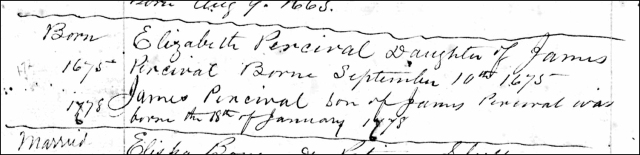 Born Aug 9. 1663.
Born Elizabeth Percival Daughter of James
1675 Percival Borne September 10th 1675
1678 James Percival son of James Percival was
borne the 18th of January 1678
Married Elisha